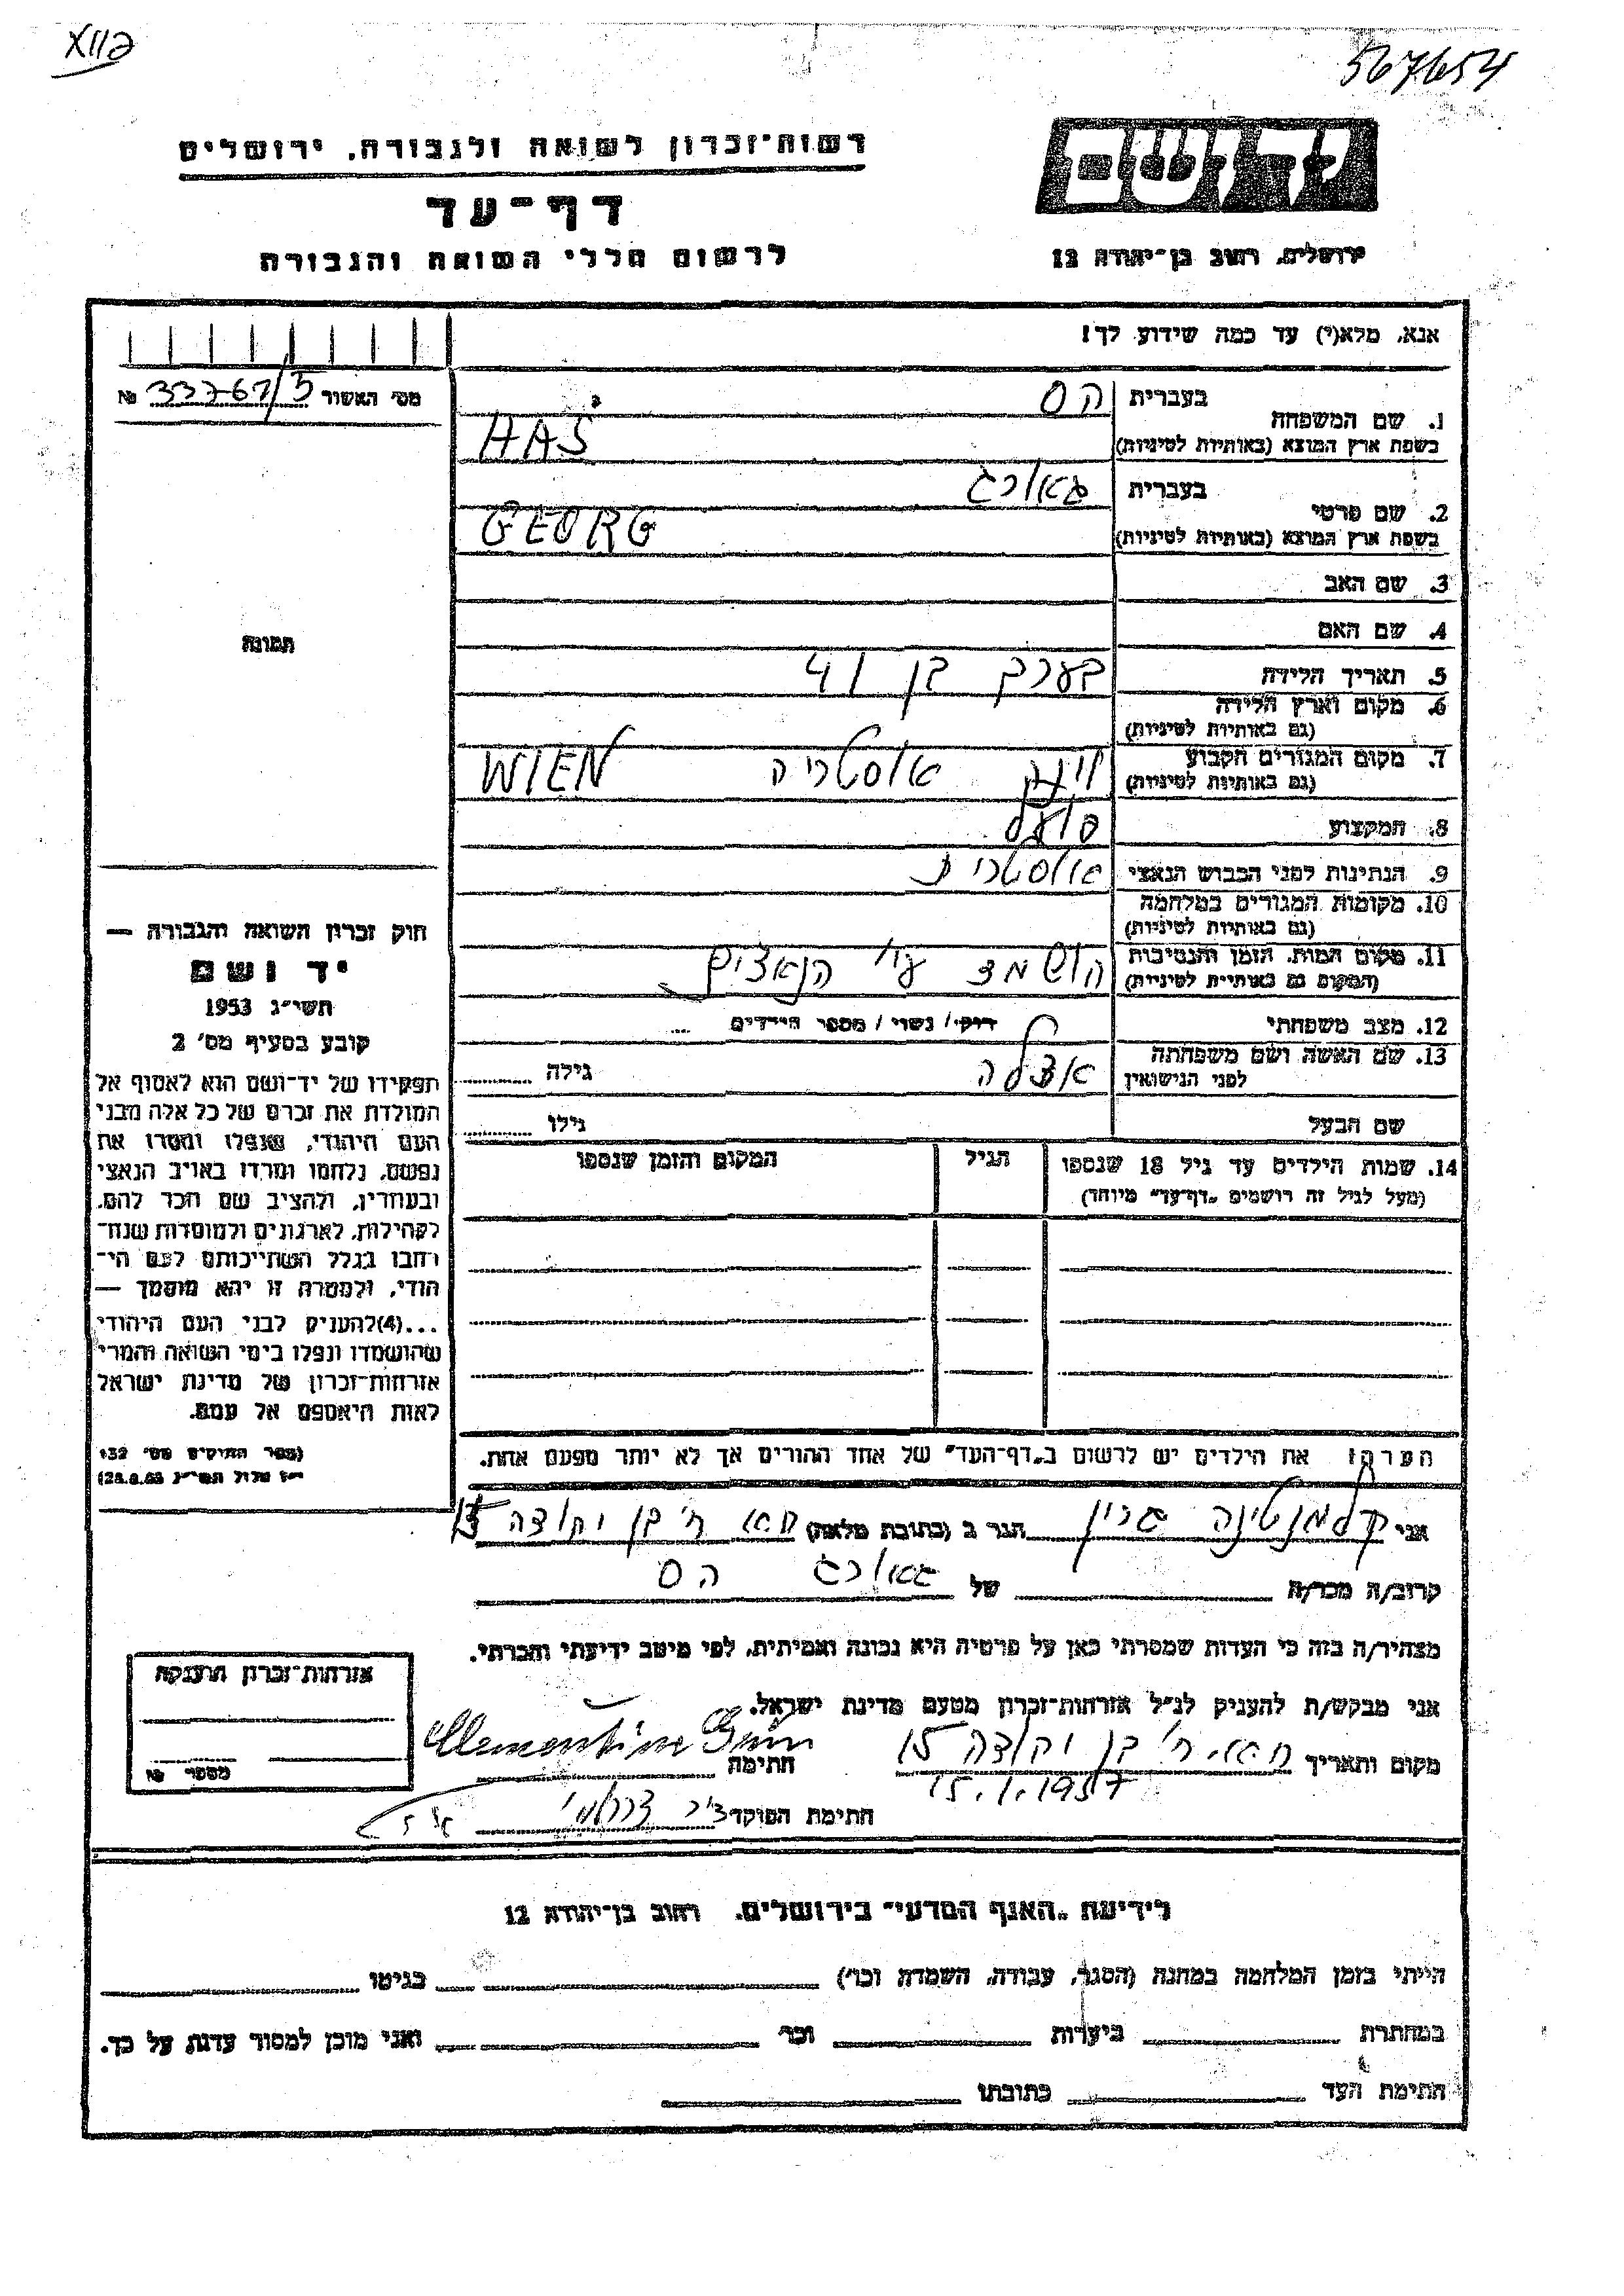 XIIהפ
567654
יד ושם
רשות-זכרון לשואה ולגבורה, ירושלים
דף-עד
לרשום חללי השואה והגבורה
ירושלים, רחוב בן-יהודה 12
אנא, מלא(י) עד כמה שידוע לך!
מס' האשור 33767/5 №
תמונה
1. שם המשפחה
בעברית הס
בשפת ארץ המוצא (באותיות לטיניות) HAS
2. שם פרטי
בעברית גאורג
בשפת ארץ המוצא (באותיות לטיניות) GEORG
3. שם האב
4. שם האם
5. תאריך הלידה בערך בן 41
6. מקום וארץ הלידה
(גם באותיות לטיניות)
7. מקום המגורים הקבוע וינה אוסטריה WIEN
(גם באותיות לטיניות)
8. המקצוע פועל
9. הנתינות לפני הכבוש הנאצי אוסטרית
10. מקומות המגורים במלחמה
(גם באותיות לטיניות)
11. מקום המות, הזמן והנסיבות הושמד ע"י הנאצים
(המקום גם באותיות לטיניות)
12. מצב משפחתי רוק/ נשוי/ מספר הילדים
13. שם האשה ושם משפחתה אצלה גילה
לפני הנישואין
שם הבעל גילו
14. שמות הילדים עד גיל 18 שנספו הגיל המקום והזמן שנספו
(מעל לגיל זה רושמים "דף-עד" מיוחד)
הערה: את הילדים יש לרשום ב"דף-העד" של אחד ההורים אך לא יותר מפעם אחת.
חוק זכרון השואה והגבורה —
יד ושם
תשי"ג 1953
קובע בסעיף מס' 2
תפקידו של יד-ושם הוא לאסוף אל
המולדת את זכרם של כל אלה מבני
העם היהודי, שנפלו ומסרו את
נפשם, נלחמו ומרדו באויב הנאצי
ובעוזריו, ולהציב שם וזכר להם,
לקהילות, לארגונים ולמוסדות שנח-
רבו בגלל השתייכותם לעם הי-
הודי, ולמטרה זו יהא מוסמך —
...(4)להעניק לבני העם היהודי
שהושמדו ונפלו בימי השואה והמרי
אזרחות-זכרון של מדינת ישראל
לאות היאספם אל עמם.
(ספר החוקים מס' 132
י"ז אלול תשי"ג 28.8.53)
אני קלמנטינה גרין הגר ב (כתובת מלאה) ת"א ר' בן יהודה 15
קרוב/ה מכר/ה של גאורג הס
מצהיר/ה בזה כי העדות שמסרתי כאן על פרטיה היא נכונה ואמיתית, לפי מיטב ידיעתי והכרתי.
אני מבקש/ת להעניק לנ"ל אזרחות-זכרון מטעם מדינת ישראל.
מקום ותאריך ת"א, ר' בן יהודה 15 חתימה Clementine Grün
15.1.1957
חתימת הפוקד
אזרחות-זכרון הוענקה
מספר №
לידיעת "האגף המדעי" בירושלים, רחוב בן-יהודה 12
הייתי בזמן המלחמה במחנה (הסגר, עבודה, השמדה וכו') בגיטו
במחתרת ביערות וכו' ואני מוכן למסור עדות על כך.
חתימת העד כתובתו